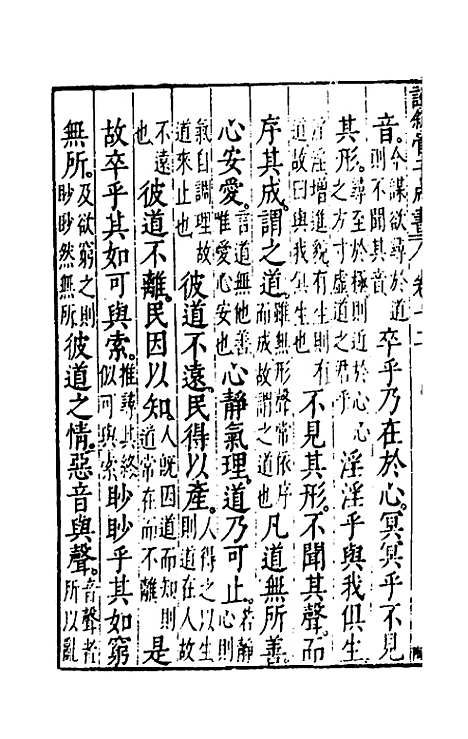 詮叙管子成書 卷十二
音。今謀欲尋於道則不聞其音卒乎乃在於心。冥冥乎不見
其形。尋至於極則近於心心之方寸虛道之君乎淫淫乎與我俱生
淫淫增進貌有生則有道故曰與我俱生也不見其形。不聞其聲。而
序其成。謂之道。雖無形聲常依序而成故謂之道也凡道無所善。
心安愛。言道無他善惟愛心安也心靜氣理。道乃可止。若靜心則
氣自調理故道來止也彼道不遠。民得以產。人得之以生則道在人故
不遠也彼道不離。民因以知。人既因道而知則道常在而不離是
故卒乎其如可與索。推尋其終似可與索眇眇乎其如窮
無所。及欲窮之則眇眇然無所彼道之情。惡音與聲。音聲者所以亂